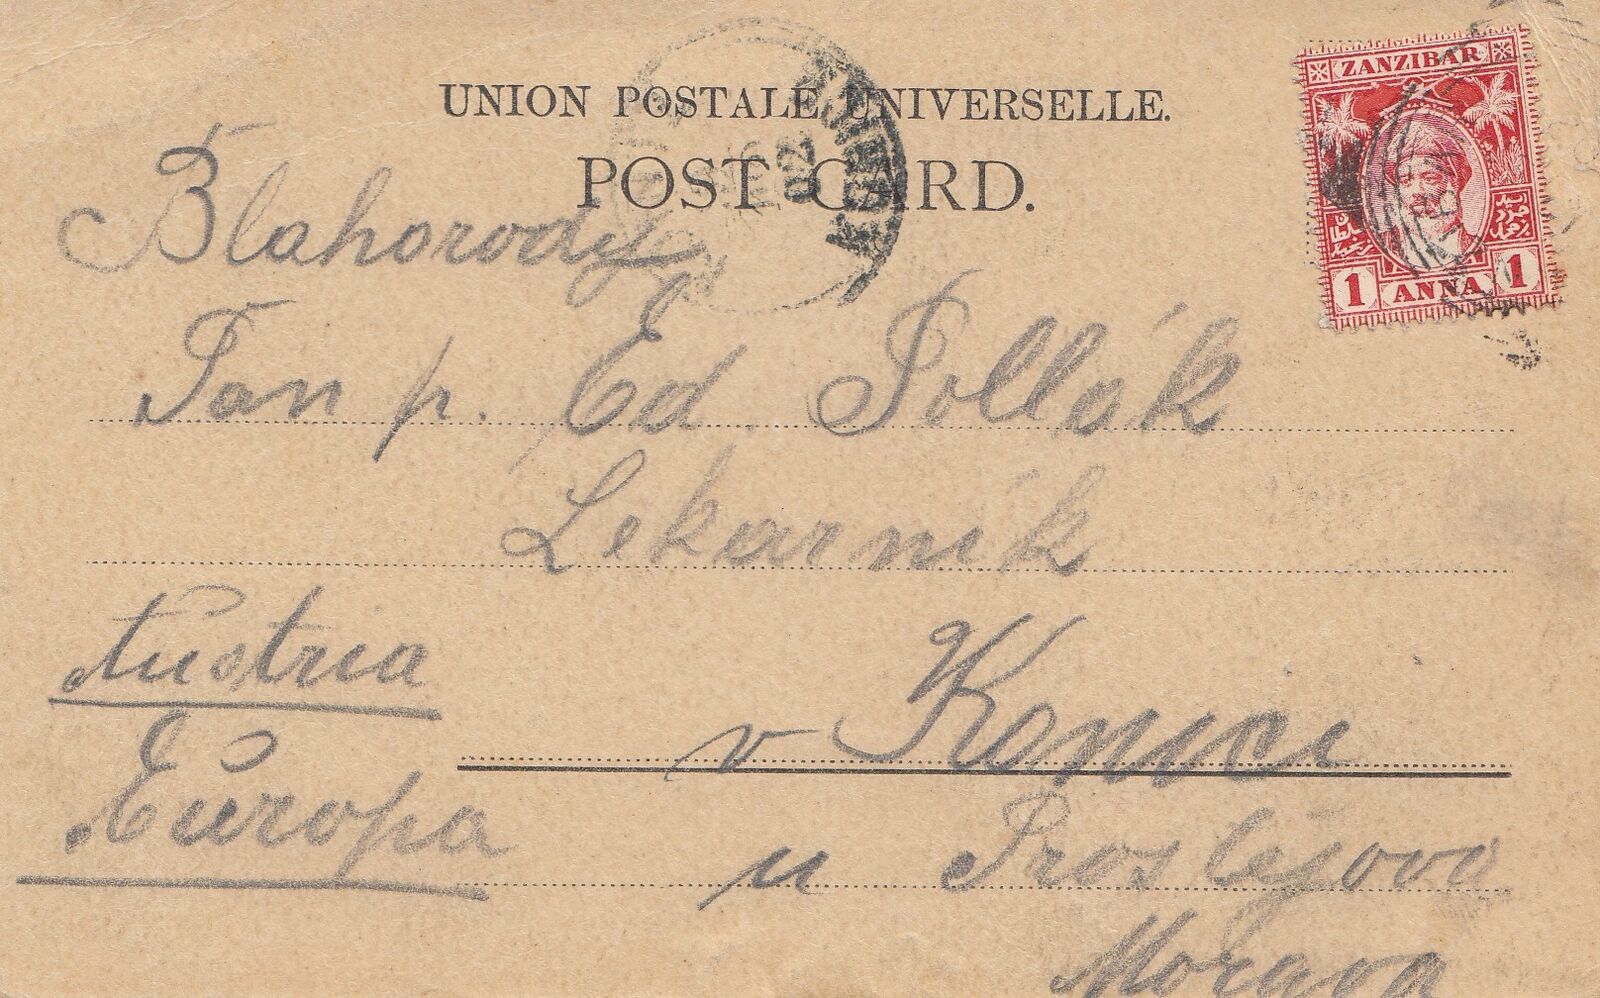 UNION POSTALE UNIVERSELLE.
POST CARD.
ZANZIBAR
1 ANNA 1
02
Blahorodý
Pan p. Ed Pollák
Lekarník
Austria
v Konici
Europa
u Prostějova
Morava